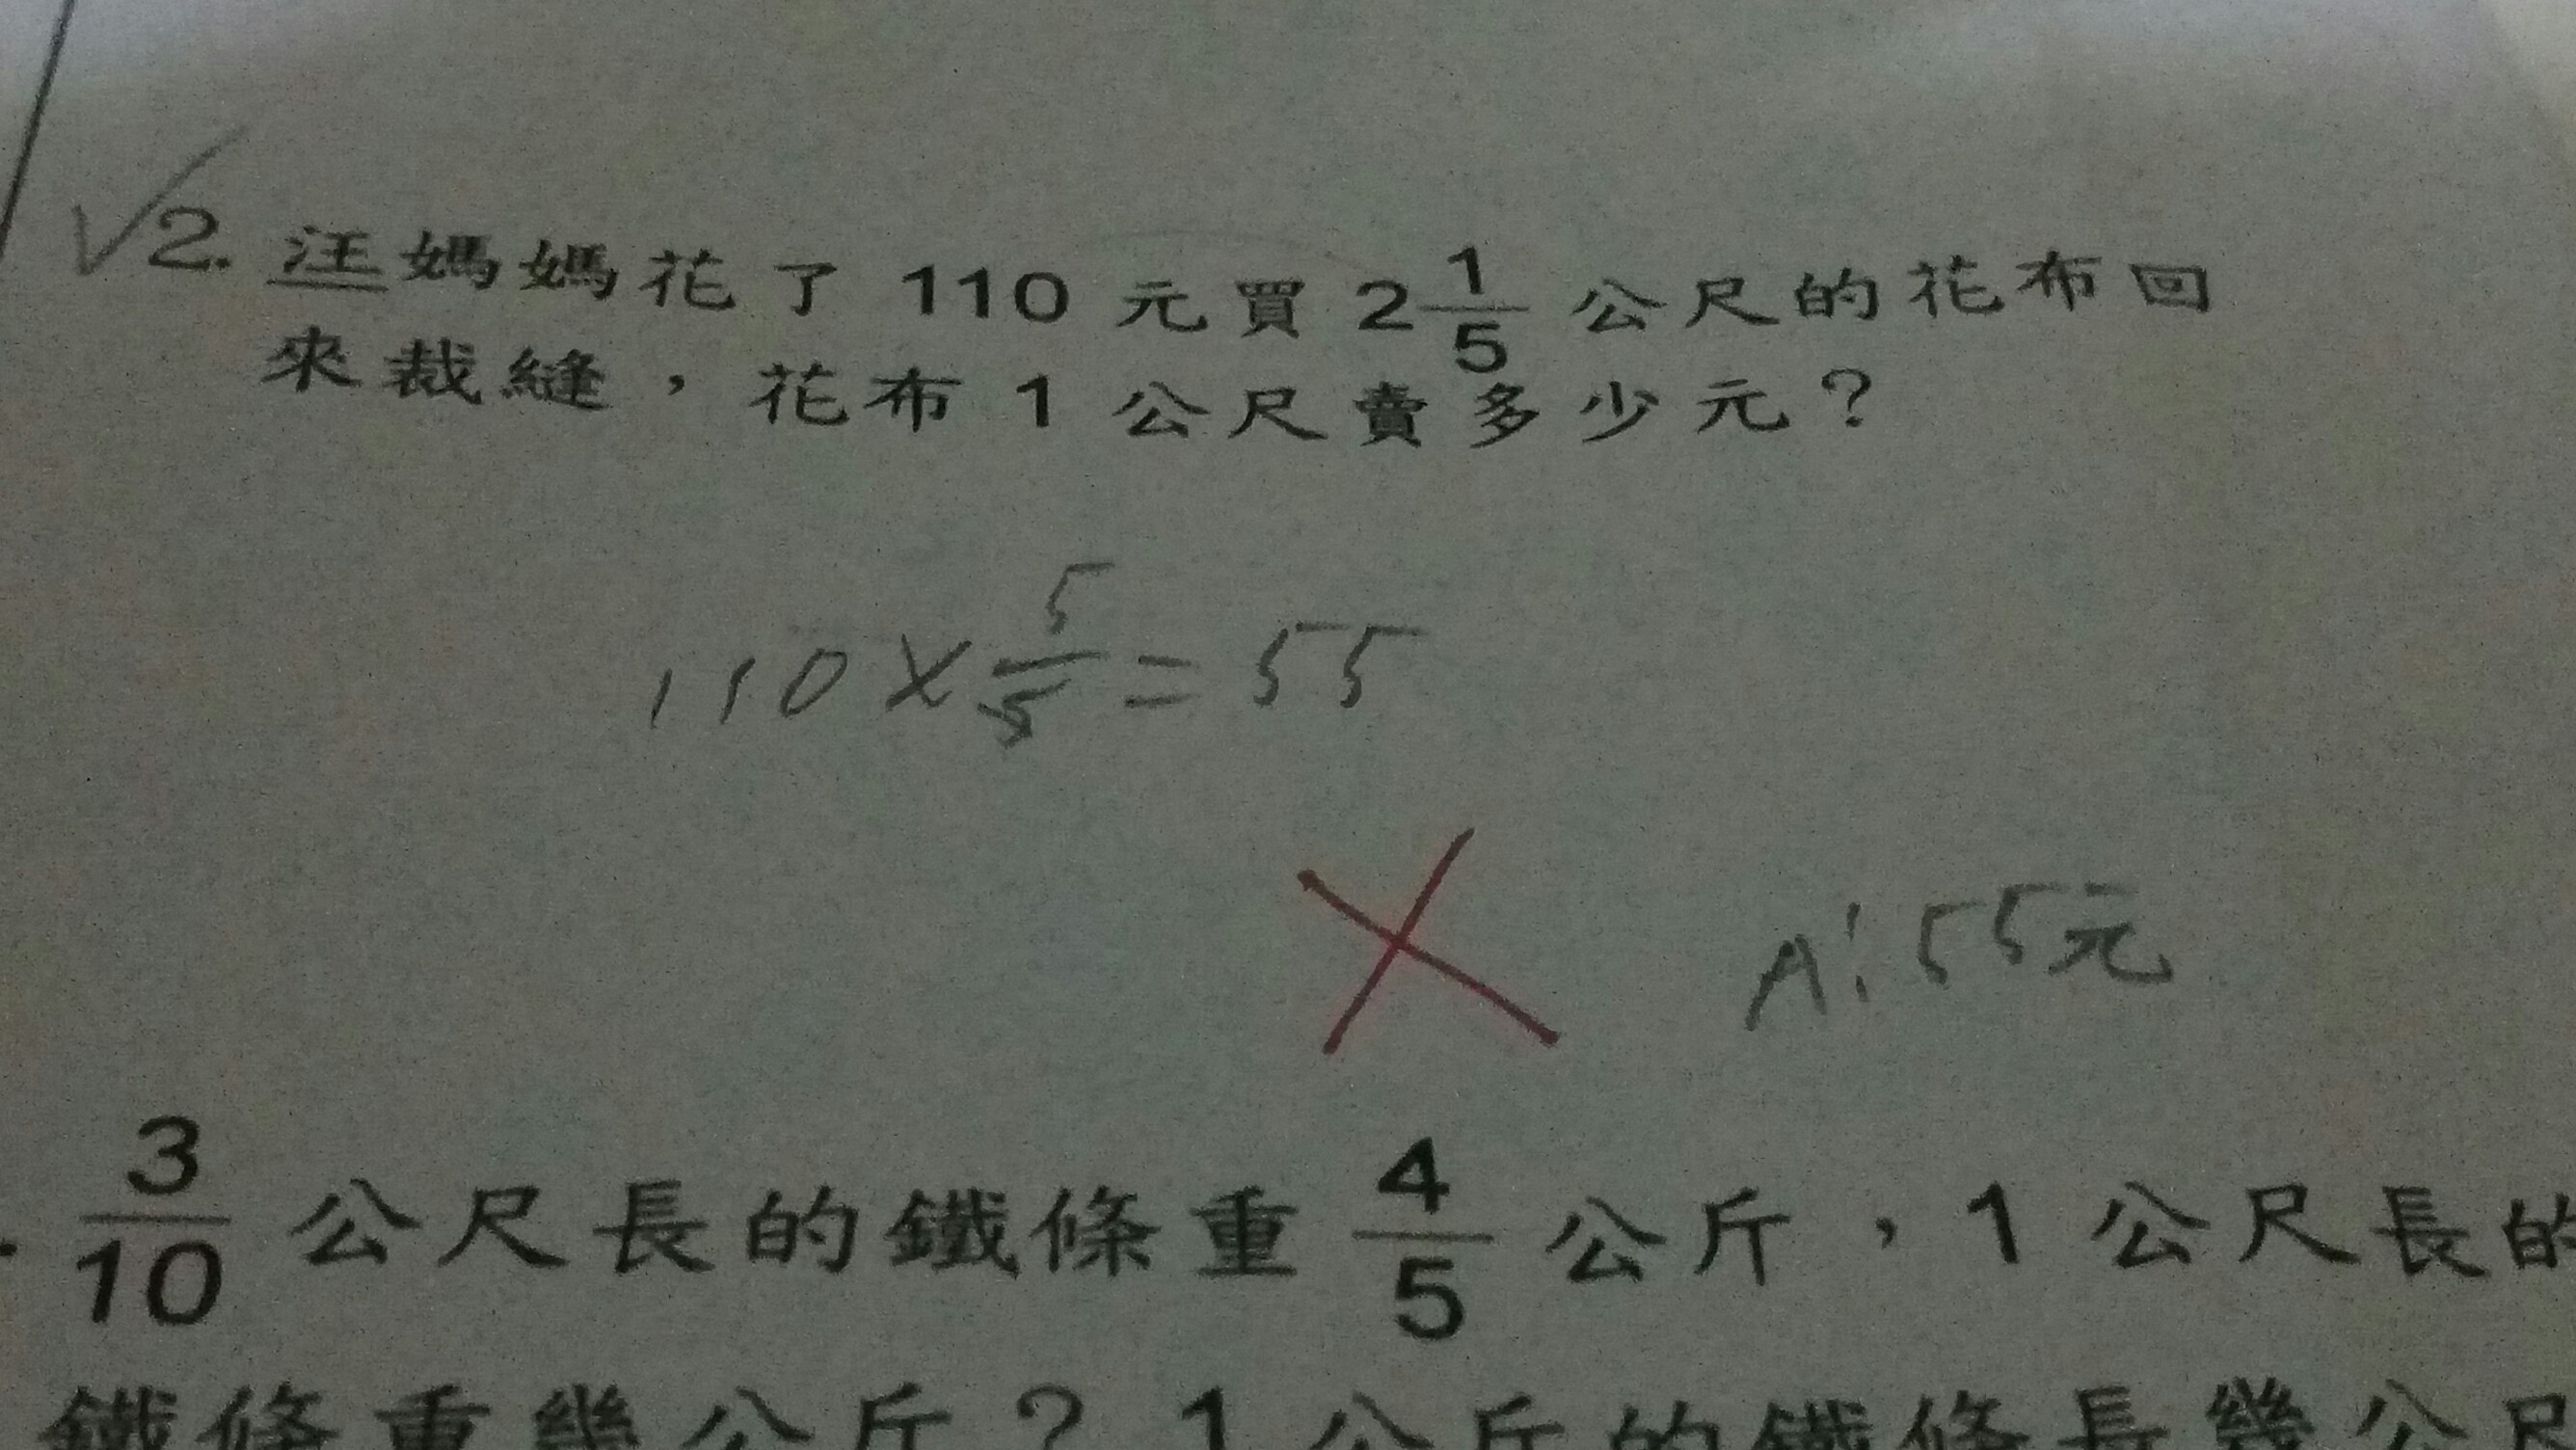 2. 汪媽媽花了 110 元買 2 1/5 公尺的花布回
來裁縫，花布 1 公尺賣多少元？
110 × 5/5 = 55
A: 55元
3/10 公尺長的鐵條重 4/5 公斤，1 公尺長的
鐵條重幾公斤？1 公斤的鐵條長幾公尺